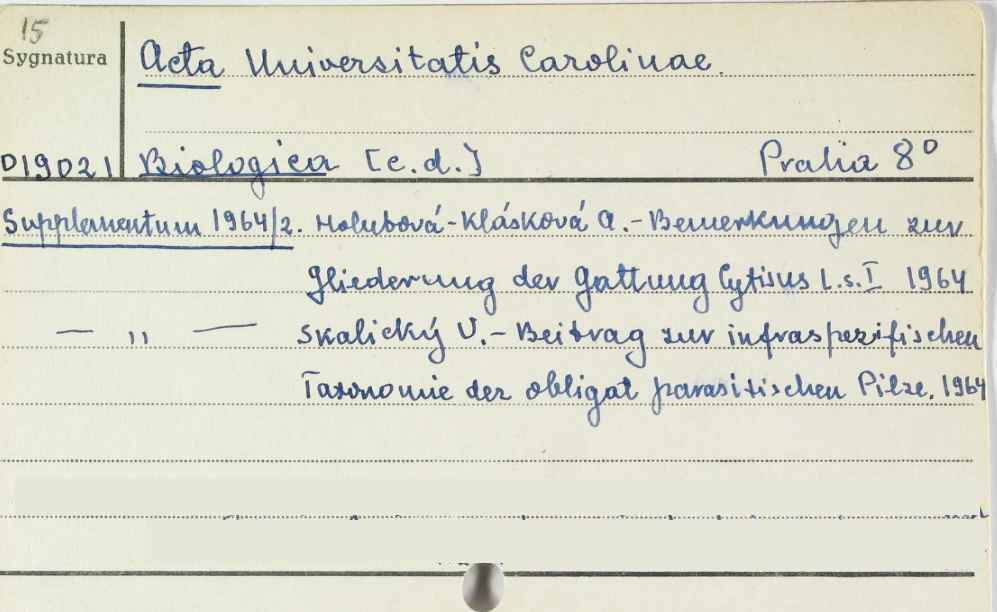 15
Sygnatura
Acta Universitatis Carolinae.
D19021 Biologica [c.d.] Praha 8°
Supplementum 1964/2. Holubová-Klásková A.-Bemerkungen zur
Gliederung der Gattung Cytisus L.s.I 1964
— „ — Skalický V.-Beitrag zur infraspezifischen
Taxonomie der obligat parasitischen Pilze. 1964